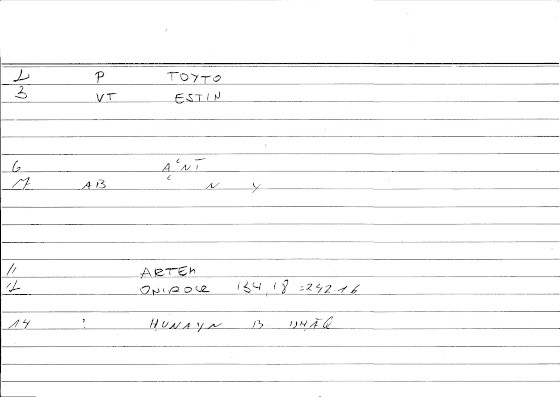 1 P TOYTO
3 VT ESTIN
6
17 AB N Y
11 ARTEM
12 ONIROCR 134,18 =242.16
14 : HUNAYN B ISHĀQ